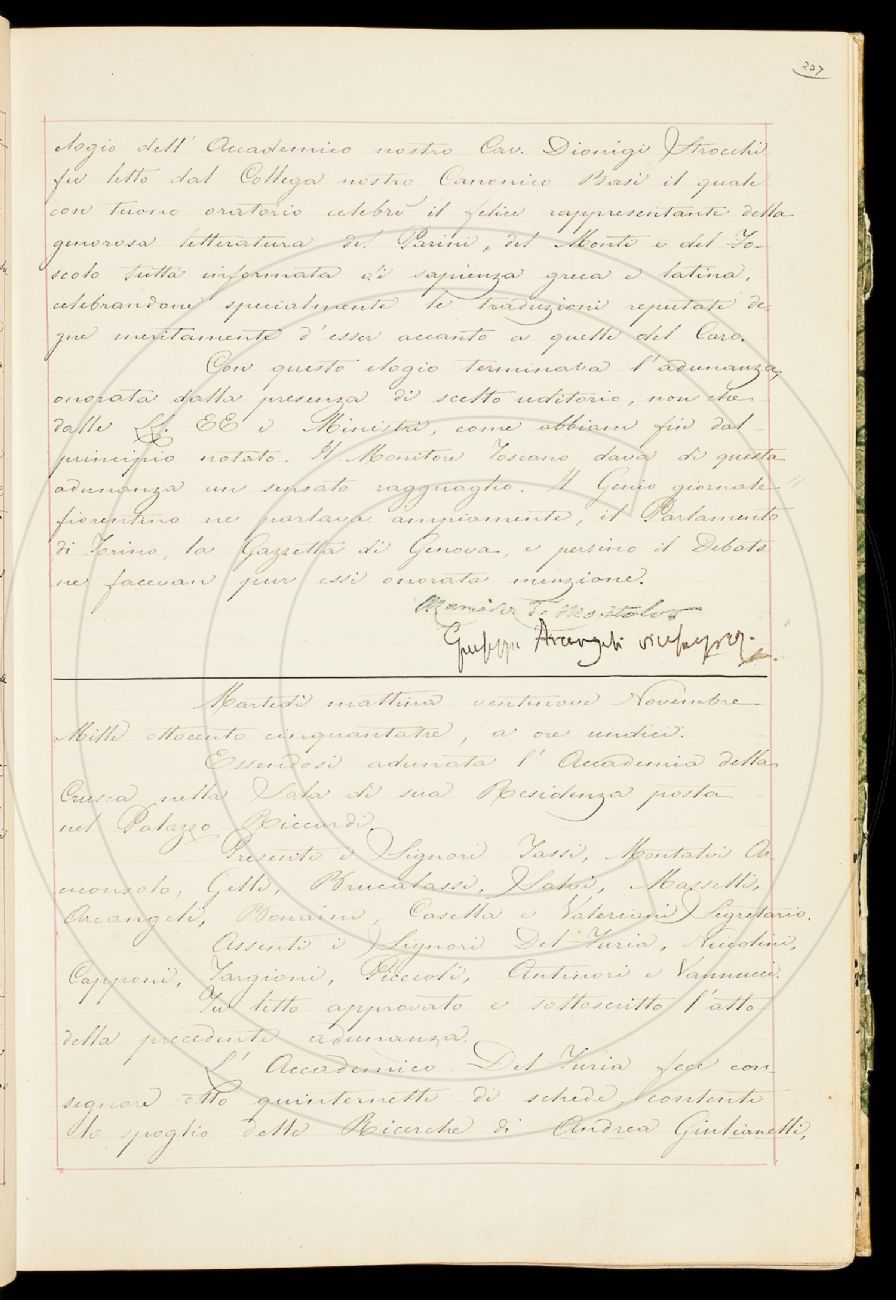 207
elogio dell' Accademico nostro Cav. Dionigi Strocchi
fu letto dal Collega nostro Canonico Basi il quale
con tuono oratorio celebrò il felice rappresentante della
generosa letteratura del Parini, del Monti e del Fo-
scolo tutta informata di sapienza greca e latina,
celebrandone specialmente le traduzioni reputate de-
gne meritamente d'esser accanto a quelle del Caro.
Con questo elogio terminava l'adunanza,
onorata dalla presenza di scelto uditorio, non che
dalle LL. EE i Ministri, come abbiam fin dal
principio notato. Il Monitore Toscano dava di questa
adunanza un sensato ragguaglio. Il Genio giornale
fiorentino ne parlava ampiamente, il Parlamento
di Torino, la Gazzetta di Genova, e persino il Debats
ne facevan pur essi onorata menzione.
Giuseppe Arcangeli
Martedì mattina ventinove Novembre
Mille ottocento cinquantatrè, a ore undici.
Essendosi adunata l' Accademia della
Crusca nella Sala di sua Residenza posta
nel Palazzo Riccardi.
Presenti i Signori Tassi, Montalvi Ar-
ciconsolo, Gelli, Brucalassi, Salvi, Masselli,
Arcangeli, Bonaini, Casella e Valeriani Segretario.
Assenti i Signori Del Furia, Niccolini,
Capponi, Targioni, Piccioli, Antinori e Vannucci.
Fu letto approvato e sottoscritto l'atto
della precedente adunanza.
L' Accademico Del Furia fece con-
segnare otto quinternetti di schede, contenti
lo spoglio delle Ricerche di Andrea Giulianelli,